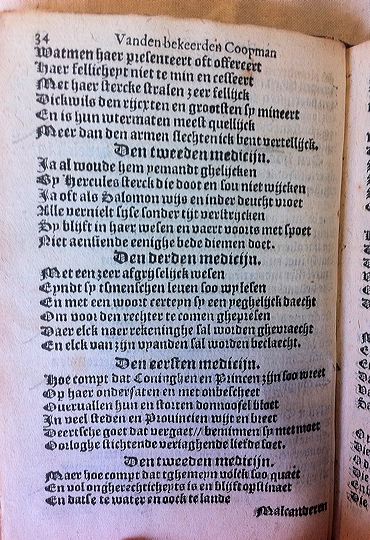 34 Vanden bekeerden Coopman
Watmen haer presenteert oft offereert
Haer felheyt niet te min en cesseert
Met haer stercke stralen zeer fellijck
Dickwils den rijcxten en grootsten sy mineert
En is hun utermaten meest quellijck
Meer dan den armen slechten ick bent vertellijck.
Den tweeden medicijn.
Ja al woude hem yemandt ghelijcken
By Hercules sterck die doot en sou niet wijcken
Ja oft als Salomon wijs en inder deucht vroet
Alle vernielt syse sonder tijt verstrijcken
Sy blijft in haer wesen en vaert voorts met spoet
Niet aensiende eenighe bede diemen doet.
Den derden medicijn.
Met een zeer afgrijselijck wesen
Eyndt sy tsmenschen leven soo wy lesen
En met een woort certeyn sy een yeghelijck daecht
Om voor den rechter te comen ghepresen
Daer elck naer rekeninghe sal worden ghevraecht
En elck van zijn vyanden sal worden beclaecht.
Den eersten medicijn.
Hoe compt dat Coninghen en Princen zijn soo wreet
Op haer ondersaten en met onbescheet
Overvallen hun en storten donnoosel bloet
In veel steden en Provincien wijt en breet
Deertsche goet dat vergaet// beminnen sy met moet
Orloghe stichtende veriaghende liefde soet.
Den tweeden medicijn.
Maer hoe compt dat tghemeyn volck soo quaet
En vol ongherechticheyts is en blijft opstinaet
En datse te water en oock te lande
Malcanderen